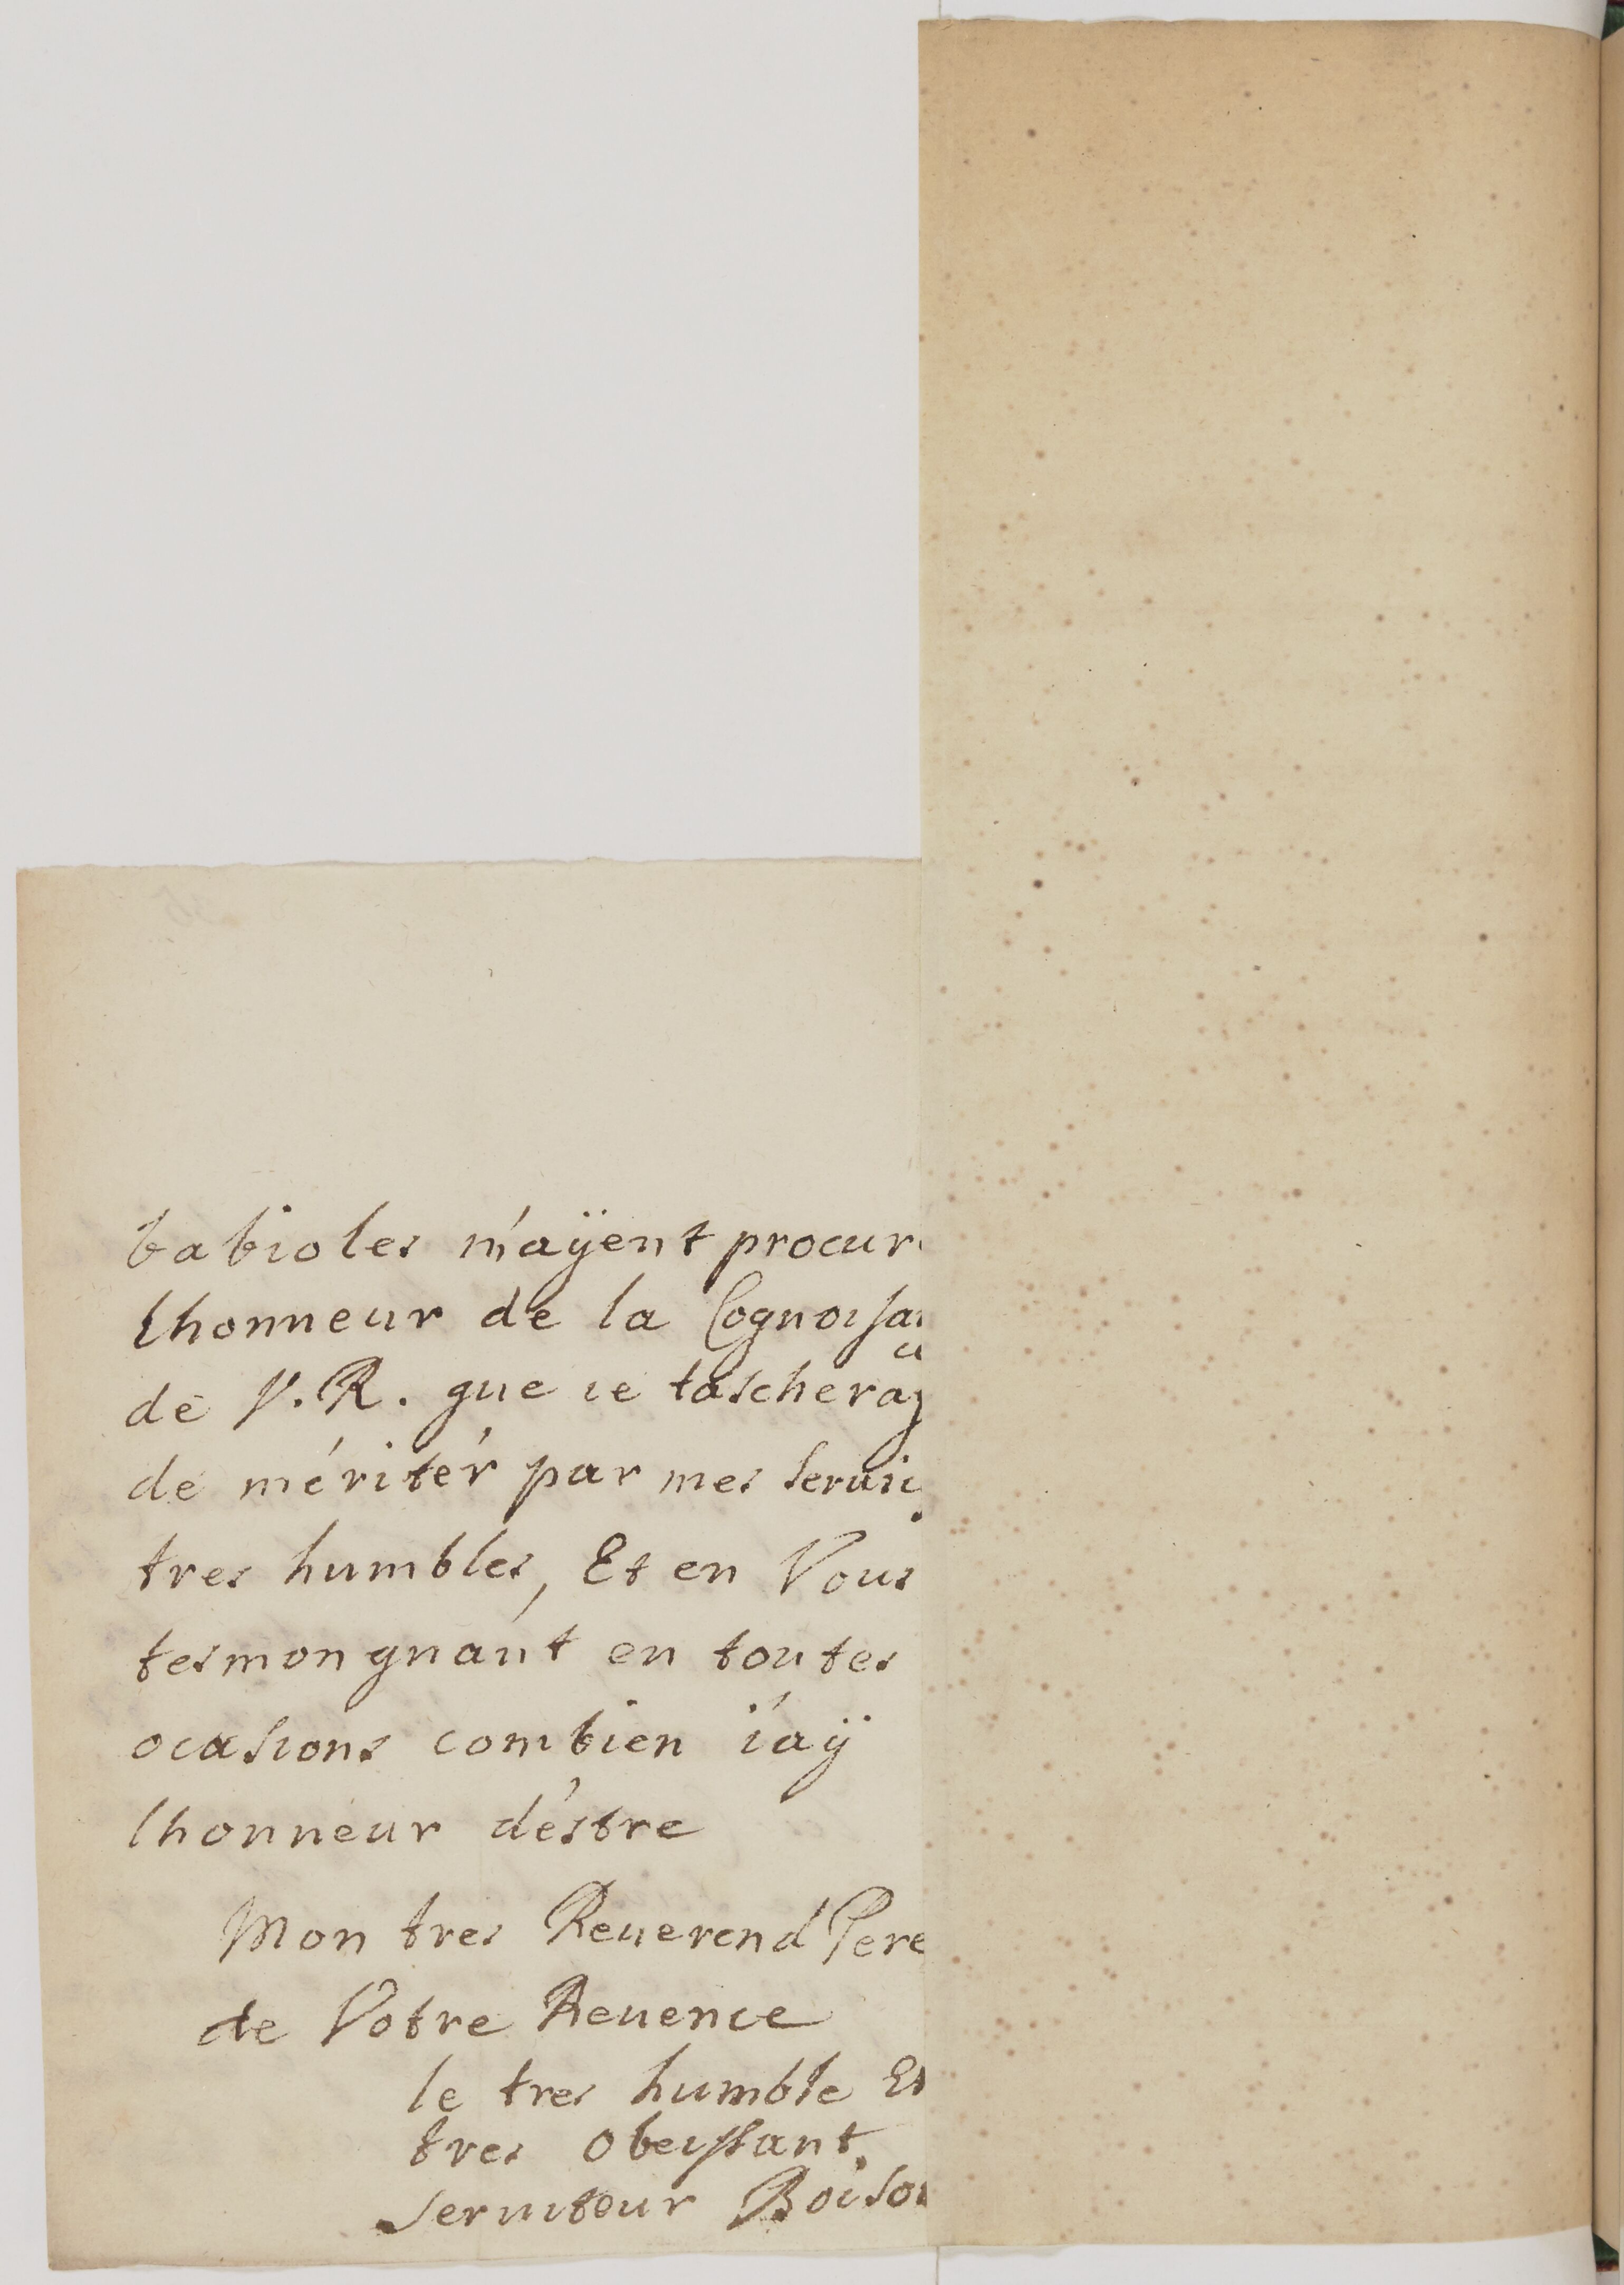 babioles m'aÿent procur
lhonneur de la Cognoisan
de V. R. que ie tascheray
de mériter par mes seruic
tres humbles, Et en Vous
tesmongnant en toutes
ocasions combien i'aÿ
lhonneur d'estre
Mon tres Reuerend Pere
de Votre Reuence
le tres humble Et
tres obeissant
seruiteur Boison